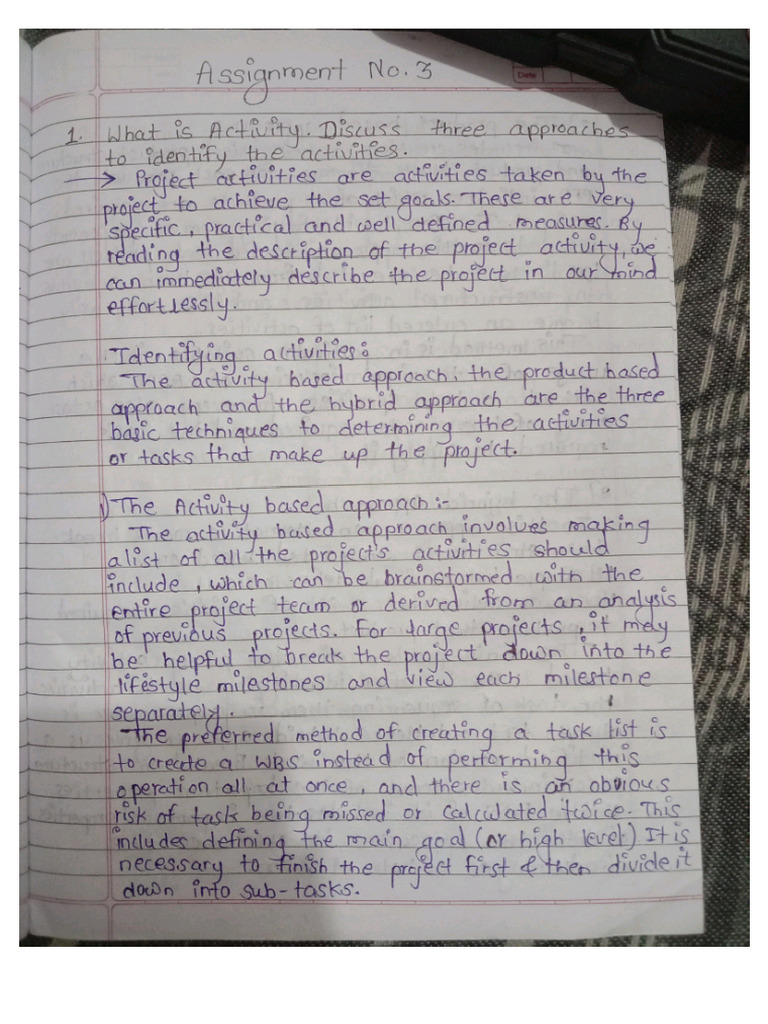 Assignment No. 3
Date
1. What is Activity. Discuss three approaches
to identify the activities.
→ Project activities are activities taken by the
project to achieve the set goals. These are very
specific, practical and well defined measures. By
reading the description of the project activity, we
can immediately describe the project in our mind
effortlessly.
Identifying activities:
The activity based approach, the product based
approach and the hybrid approach are the three
basic techniques to determining the activities
or tasks that make up the project.
1) The Activity based approach :-
The activity based approach involves making
a list of all the project's activities should
include, which can be brainstormed with the
entire project team or derived from an analysis
of previous projects. For large projects, it may
be helpful to break the project down into the
lifestyle milestones and view each milestone
separately.
The preferred method of creating a task list is
to create a WBS instead of performing this
operation all at once, and there is an obvious
risk of task being missed or calculated twice. This
includes defining the main goal (or high level) It is
necessary to finish the project first & then divide it
down into sub-tasks.